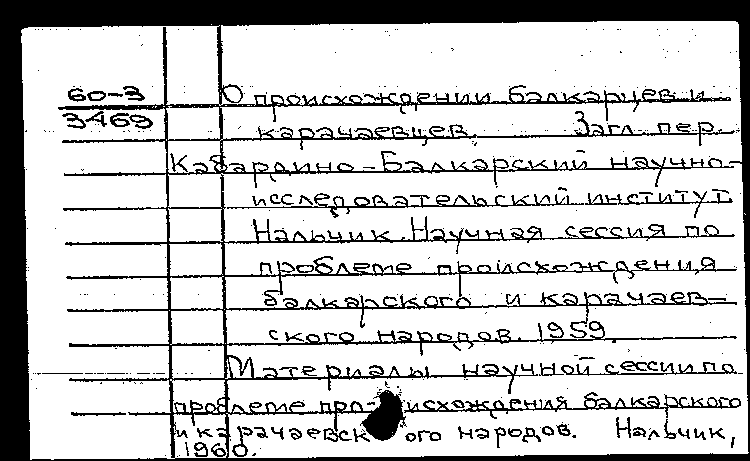 60-3
О происхождении балкарцев и
3469
карачаевцев. Загл. пер.
Кабардино-Балкарский научно-
исследовательский институт.
Нальчик. Научная сессия по
проблеме происхождения
балкарского и карачаев-
ского народов. 1959.
Материалы научной сессии по
проблеме про- исхождения балкарского
и карачаевск ого народов. Нальчик,
1960.